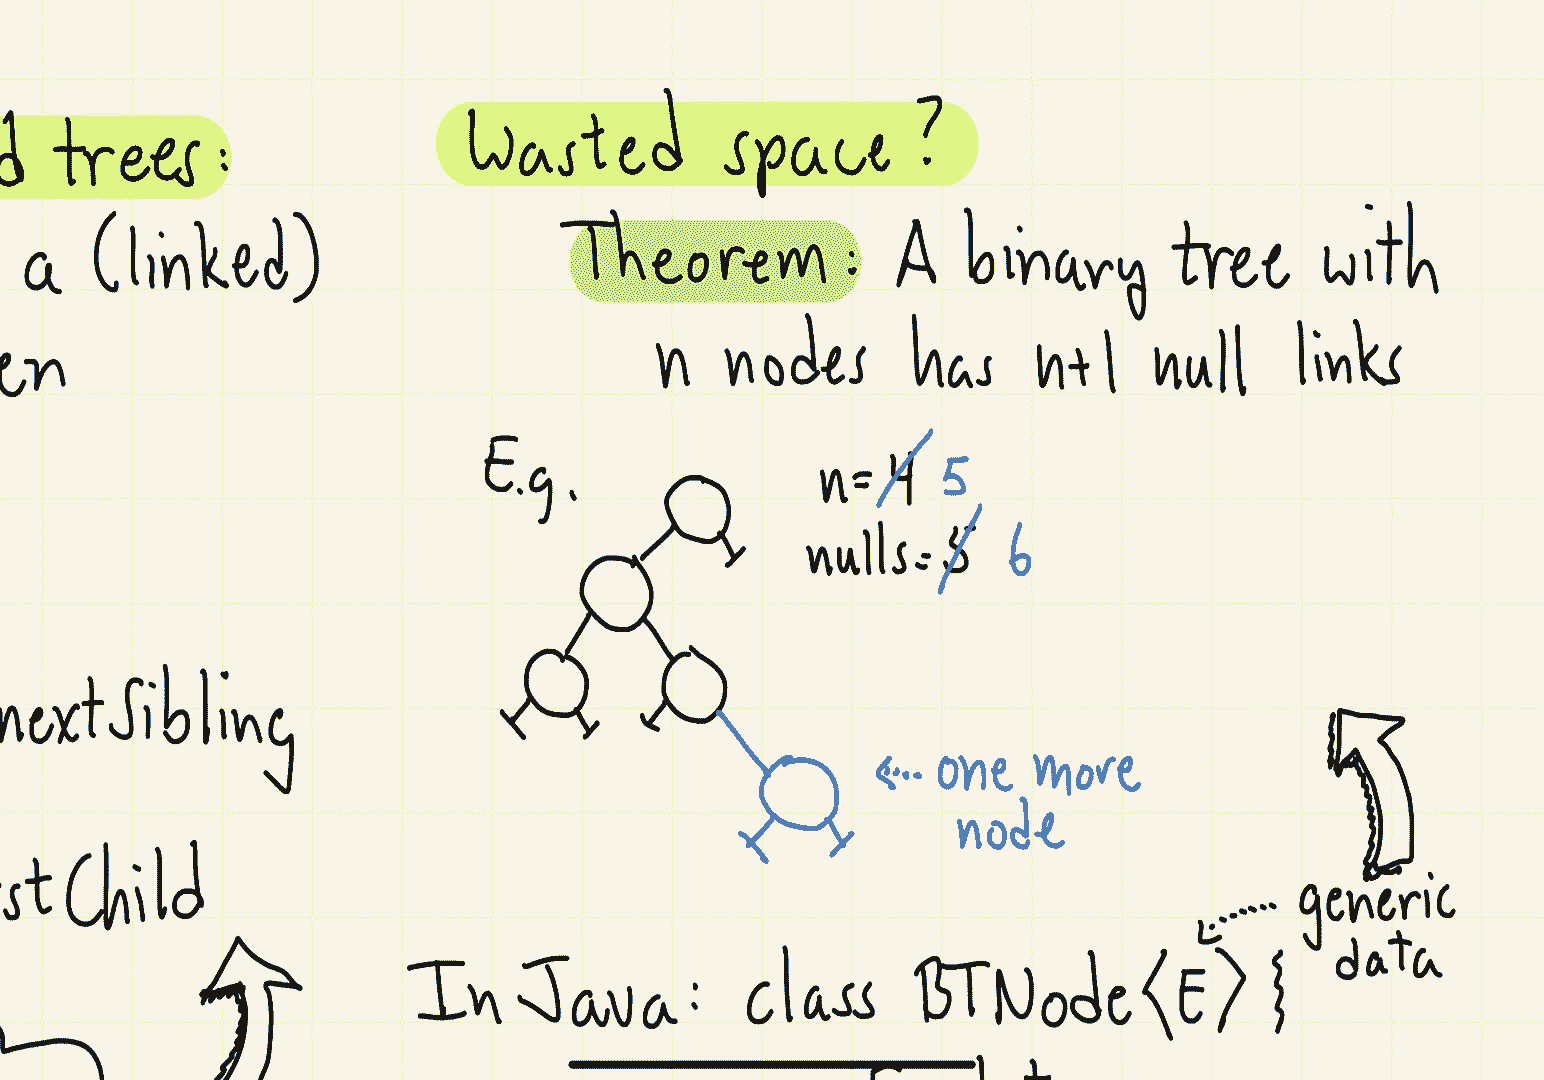 d trees:
a (linked)
en
nextSibling
stChild
Wasted space?
Theorem: A binary tree with
n nodes has n+1 null links
E.g.
n=4 5
nulls=5 6
one more
node
generic
data
In Java: class BTNode<E> {